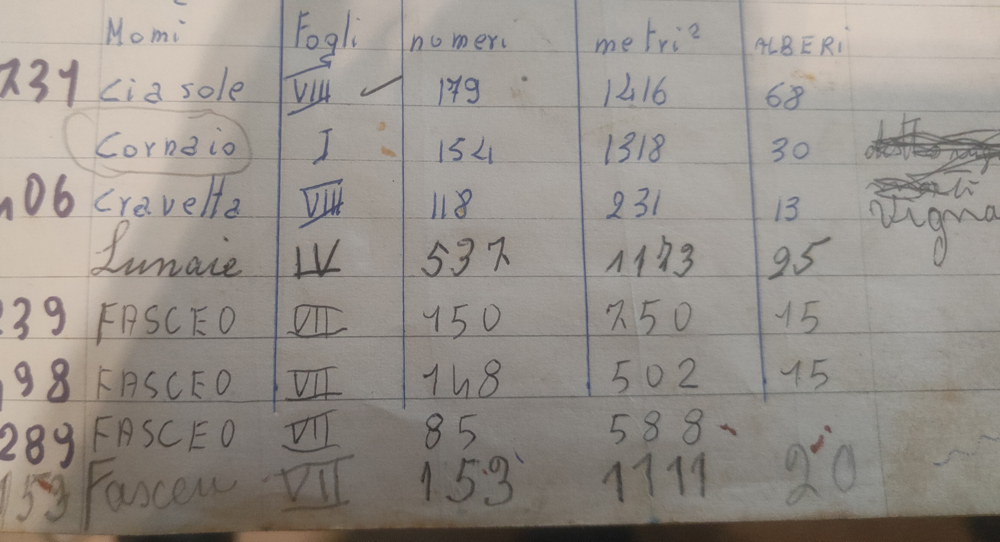 Nomi Fogli numeri metri² ALBERI
731 Cia sole VIII ✓ 179 1416 68
Cornaio I 154 1318 30
406 Cravetta VIII 118 231 13 Vigna
Lunaie IV 537 1173 25
239 FASCEO VII 150 750 15
498 FASCEO VII 148 502 15
289 FASCEO VII 85 588
153 Fasceu VII 153 1111 20